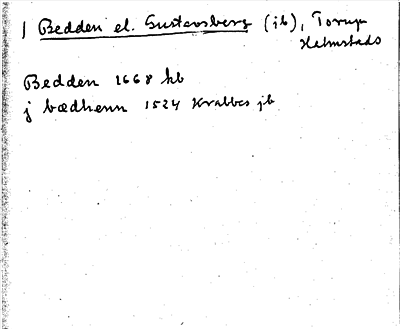 1 Bedden el. Gustavsberg (ib), Torup
Halmstads
Bedden 1668 hb
j bædhenn 1524 Krabbes jb